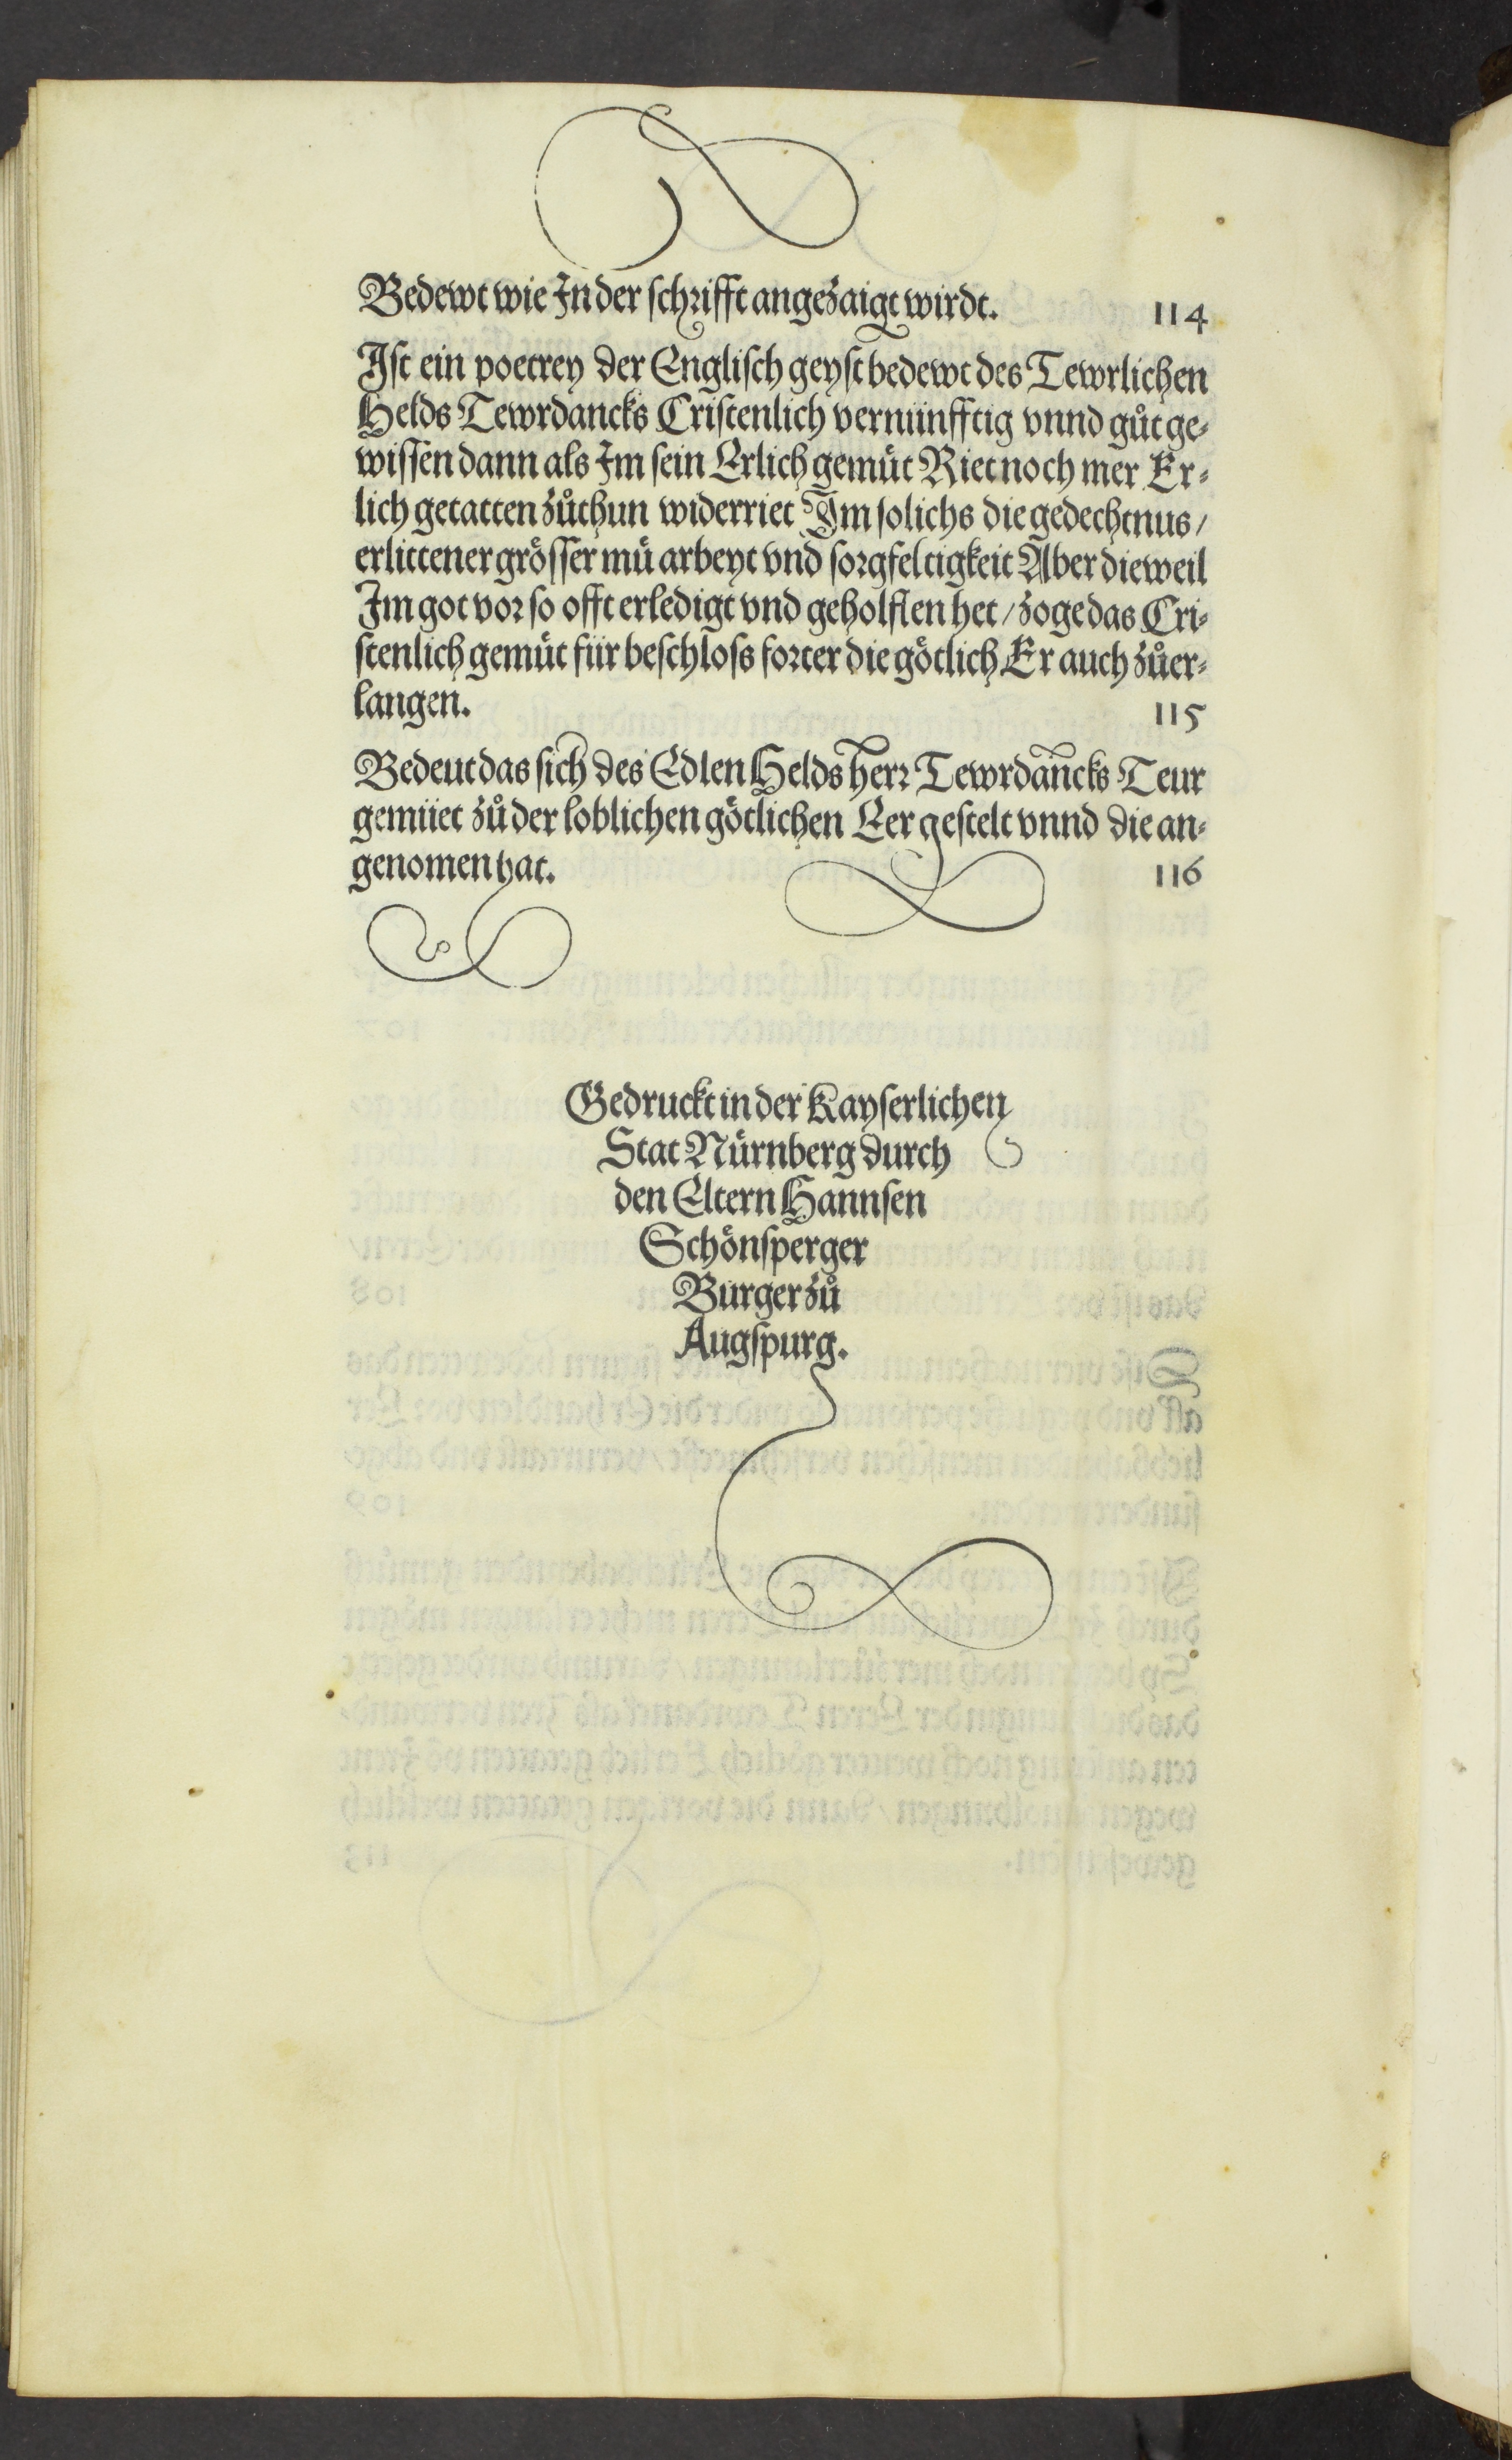 Bedewt wie In der schrifft angezaigt wirdt. 114
Ist ein poetrey der Englisch geyst bedewt des Tewrlichen
Helds Tewrdancks Cristenlich vernünfftig vnnd gůt ge-
wissen dann als Im sein Erlich gemüt Riet noch mer Er-
lich getatten zůthun widerriet Im solichs die gedechtnus /
erlittener grösser mü arbeyt vnd sorgfeltigkeit Aber dieweil
Im got vor so offt erledigt vnd geholffen het / zoge das Cri-
stenlich gemüt für beschloss forter die götlich Er auch zůer-
langen. 115
Bedeut das sich des Edlen Helds herr Tewrdancks Teur
gemüet zů der loblichen götlichen Eer gestelt vnnd die an-
genomen hat. 116
Gedruckt in der Kayserlichen
Stat Nürnberg durch
den Eltern Hannsen
Schönsperger
Burger zů
Augspurg.